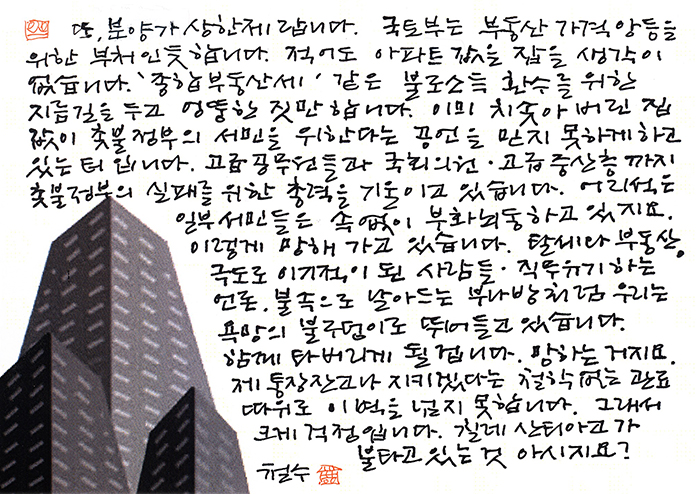 또, 분양가 상한제 랍니다. 국토부는 부동산 가격 앙등을
위한 부처인듯 합니다. 적어도 아파트값을 잡을 생각이
없습니다. '종합부동산세' 같은 불로소득 환수를 위한
지름길을 두고 엉뚱한 짓만 합니다. 이미 치솟아 버린 집
값이 촛불정부의 서민을 위한다는 공언을 믿지 못하게 하고
있는 터 입니다. 고급공무원들과 국회의원·고급중산층까지
촛불정부의 실패를 위한 총력을 기울이고 있습니다. 어리석은
일부 서민들은 속없이 부화뇌동하고 있지요.
이렇게 망해 가고 있습니다. 탈세와 부동산.
극도로 이기적이 된 사람들·직무유기하는
언론. 불속으로 날아드는 부나방처럼 우리는
욕망의 불구덩이로 뛰어들고 있습니다.
함께 타버리게 될 겁니다. 망하는 거지요.
제 통장잔고나 지키겠다는 철학없는 관료
따위로 이 벽을 넘지 못합니다. 그래서
크게 걱정입니다. 칠레 산티아고가
불타고 있는 것 아시지요?
철수